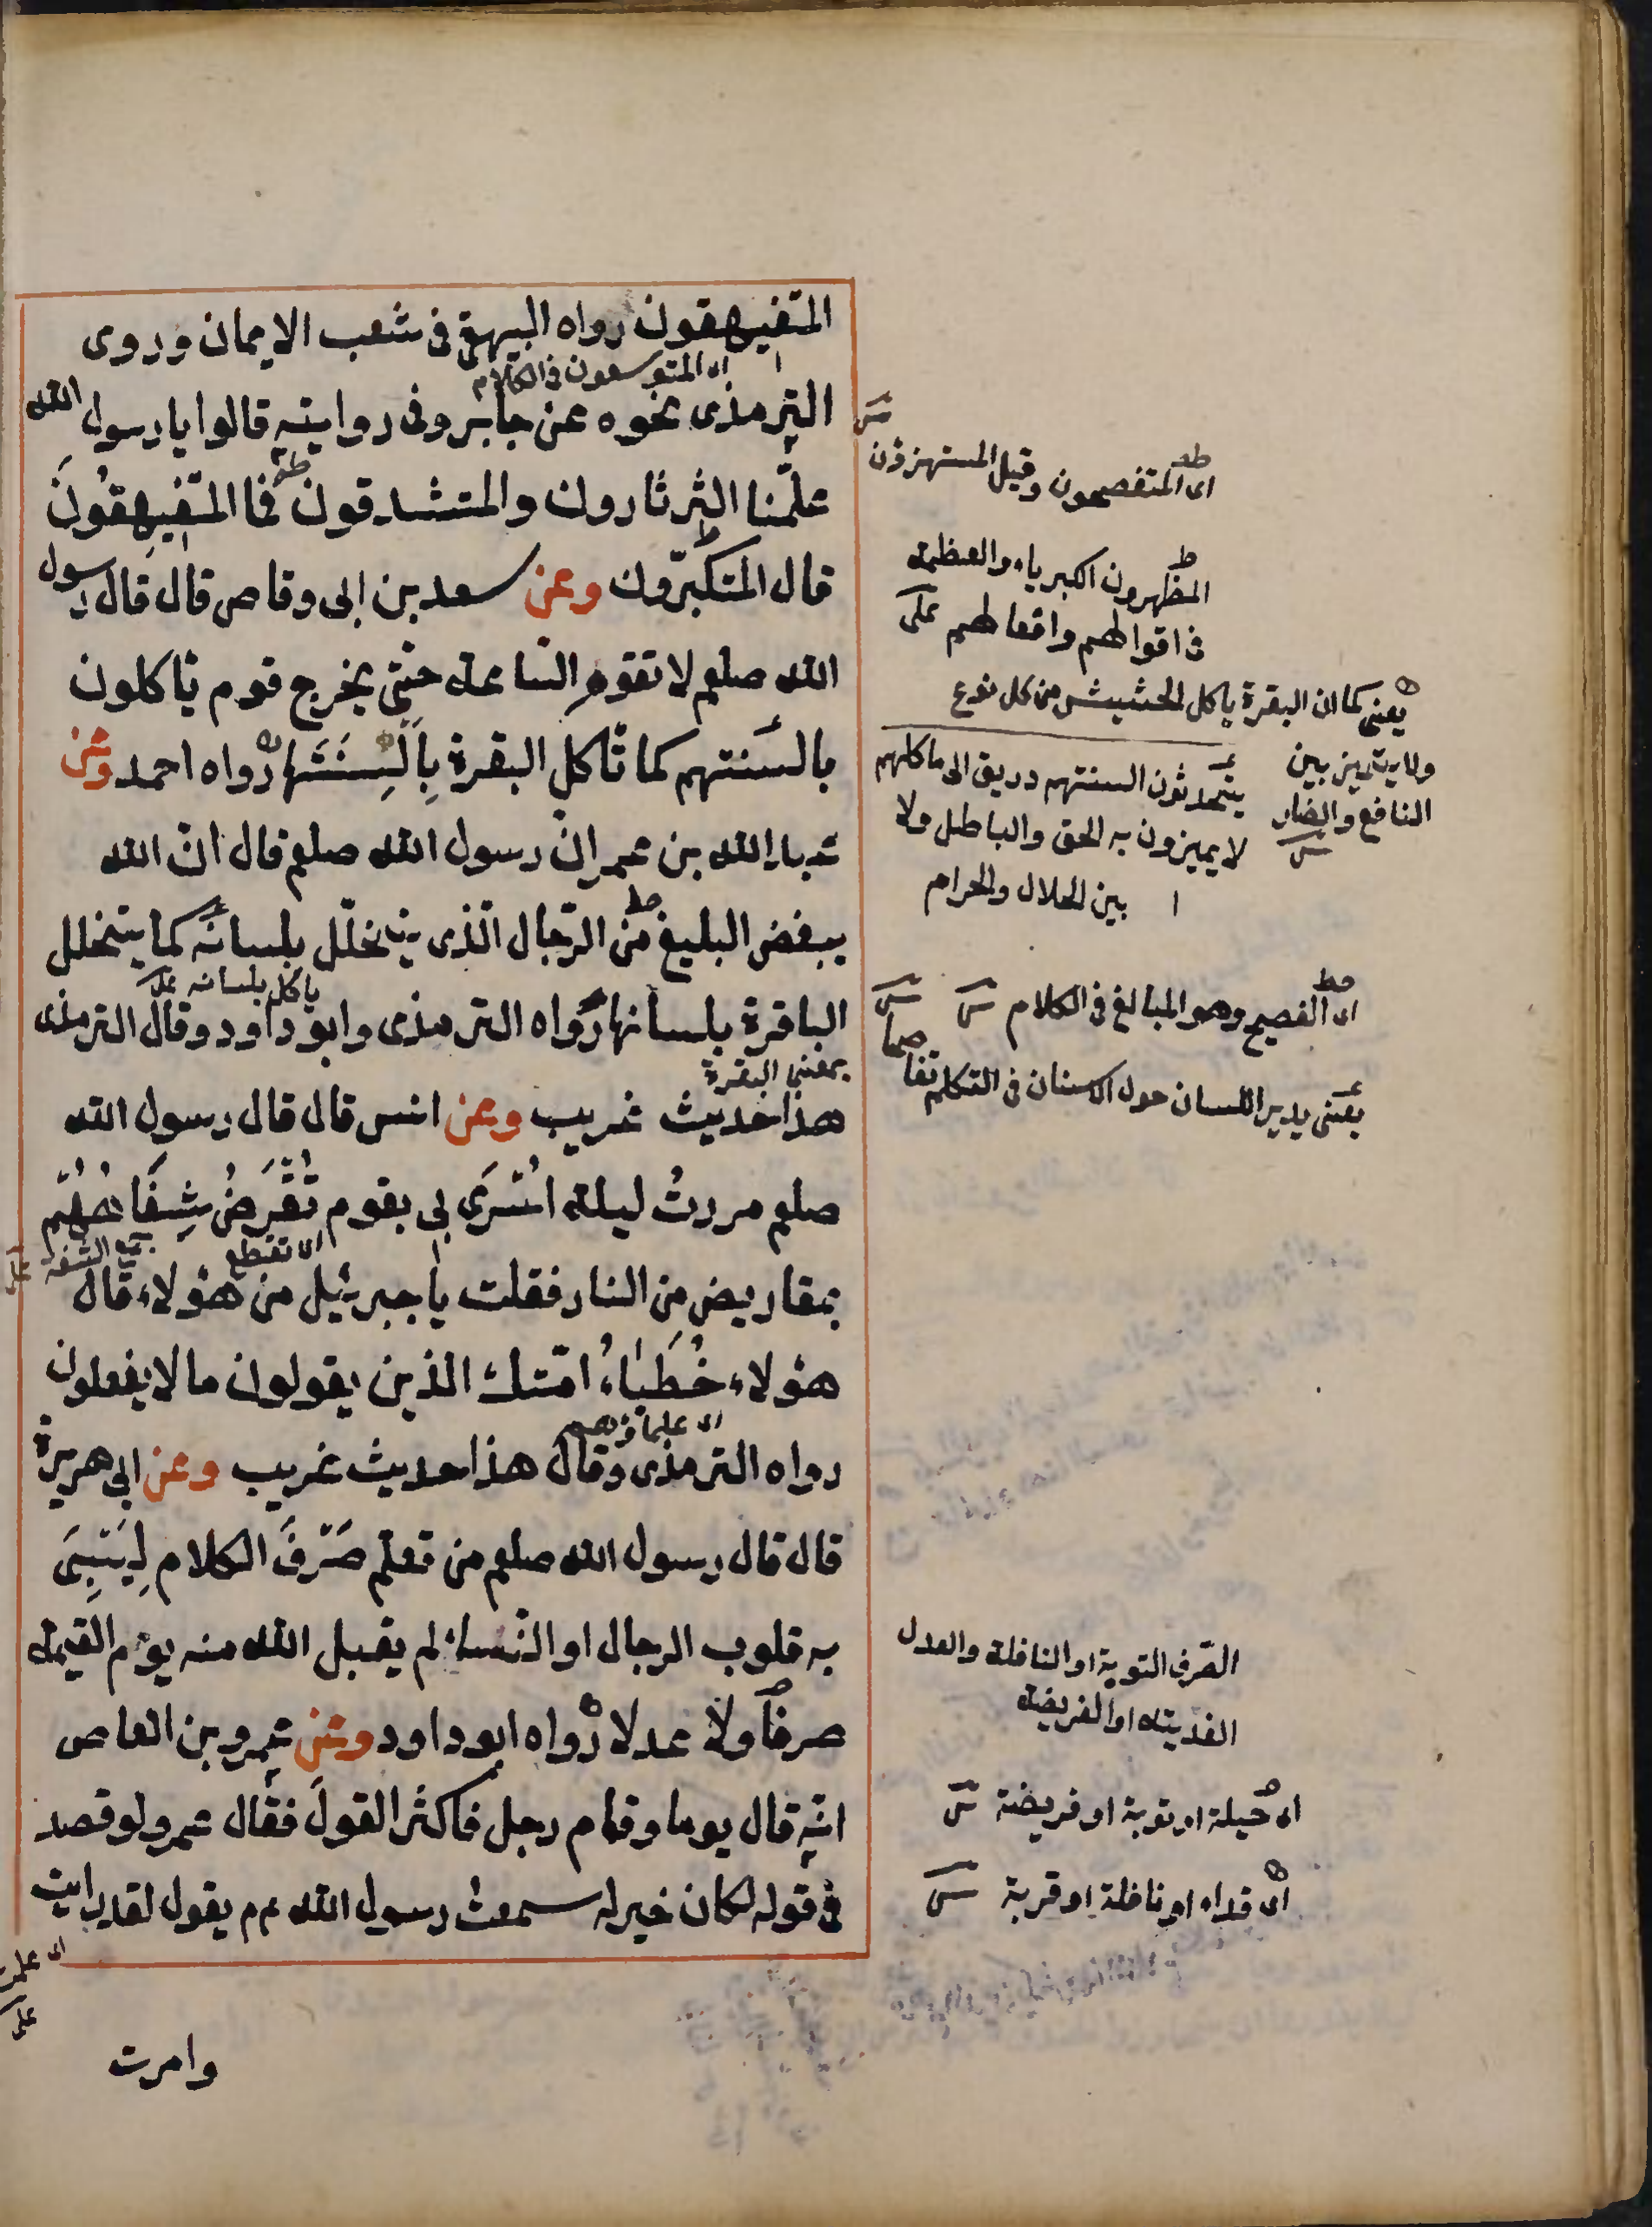 المتفيهقون رواه البيهقى فى شعب الايمان وروى
اى المتوسعون فى الكلام
الترمذى نحوه عن جابر وفى رواية قالوا يا رسول الله
علمنا الثرثارون والمتشدقون فما المتفيهقون
قال المتكبرون وعن سعد بن ابى وقاص قال قال رسول
الله صلعم لا تقوم الساعة حتى يخرج قوم ياكلون
بالسنتهم كما تاكل البقرة بالسنتها رواه احمد وعن
عبد الله بن عمر ان رسول الله صلعم قال ان الله
يبغض البليغ من الرجال الذى يتخلل بلسانه كما يتخلل
ياكل بلسانه
الباقرة بلسانها رواه الترمذى وابو داود وقال الترمذى
بمعنى البقرة
هذا حديث غريب وعن انس قال قال رسول الله
صلعم مررت ليلة اسرى بى بقوم تقرض شفاههم
اى تقطع
جمع الشفة
بمقاريض من النار فقلت يا جبرئيل من هؤلاء قال
هؤلاء خطباء امتك الذين يقولون ما لا يفعلون
اى علماؤهم
رواه الترمذى وقال هذا حديث غريب وعن ابى هريرة
قال قال رسول الله صلعم من تعلم صرف الكلام ليسبى
به قلوب الرجال او النساء لم يقبل الله منه يوم القيمة
صرفا ولا عدلا رواه ابو داود وعن عمرو بن العاص
انه قال يوما وقام رجل فاكثر القول فقال عمرو لو قصد
فى قوله لكان خير له سمعت رسول الله عم يقول لقد رايت
اى علمت
على
وامرت
اى المتفصحون وقيل المستهزؤن
المظهرون الكبرياء والعظمة
فى اقوالهم وافعالهم على
يعنى كما ان البقرة ياكل الحشيش من كل نوع
ولا يتميز بين
النافع والضار
يتحدثون السنتهم دريق الى ماكلهم
لا يميزون به الحق والباطل ولا
بين الحلال والحرام
اى الفصيح وهو المبالغ فى الكلام
يعنى يدير اللسان حول الاسنان فى التكلم تفاصحا
الصرف التوبة او النافلة والعدل
الفدية او الفريضة
اى حيلة او توبة او فريضة
اى فداء او نافلة او قربة